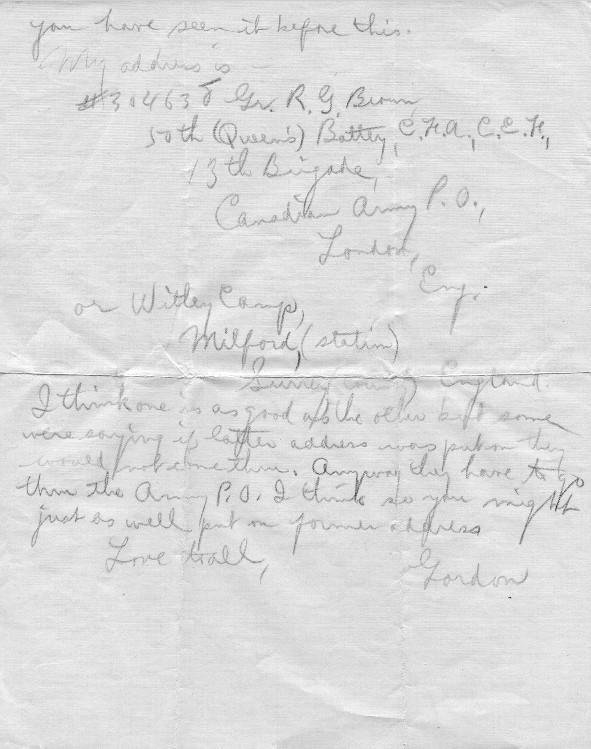 you have seen it before this.
My address is —
#304630 Gr. R. G. Brown,
50th (Queen's) Battey, C.F.A., C.E.F.,
13th Brigade,
Canadian Army P.O.,
London,
Eng.
or Witley Camp,
Milford, (station)
Surrey County England.
I think one is as good as the other but some
were saying if latter address was put on they
would not come thru. Anyway they have to go
thru the Army P.O. I think so you might
just as well put on former address
Love to all,
Gordon